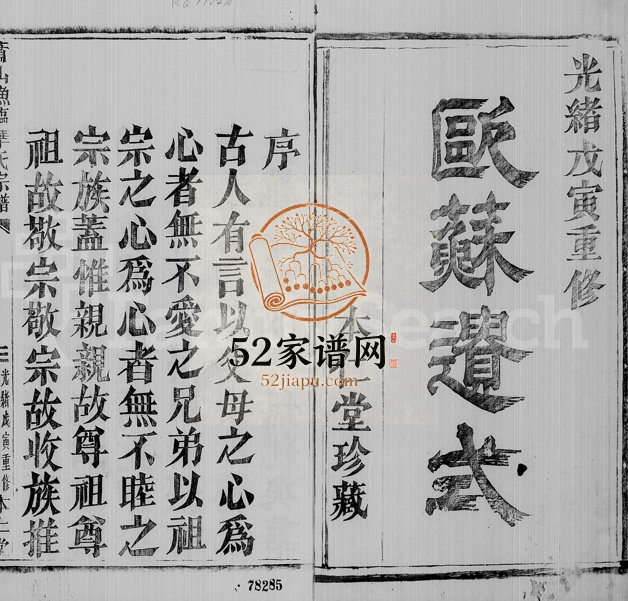 光緒戊寅重修
歐蘇遺式
本仁堂珍藏
序
古人有言以父母之心爲
心者無不愛之兄弟以祖
宗之心爲心者無不睦之
宗族蓋惟親親故尊祖尊
祖故敬宗敬宗故收族推
蕭山漁臨華氏宗譜
光緒戊寅重修
本仁堂
52家谱网
52jiapu.com
78285